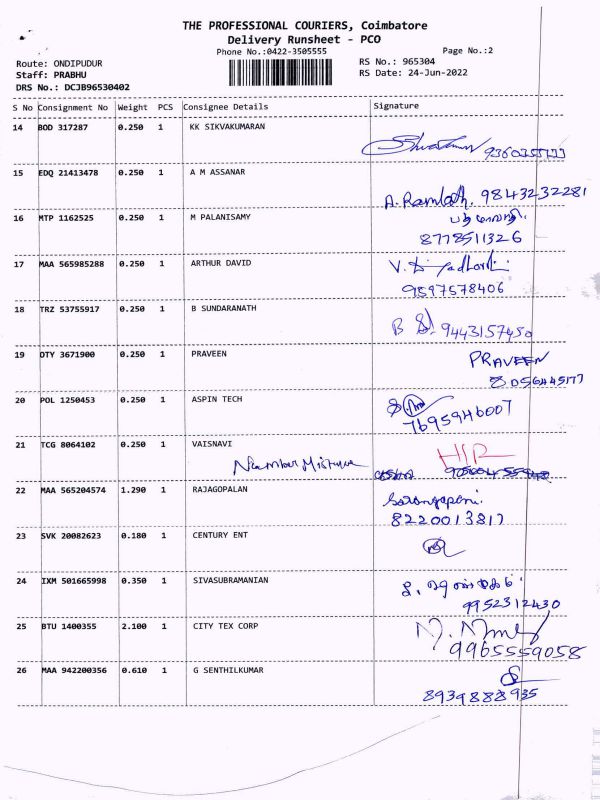 THE PROFESSIONAL COURIERS, Coimbatore
Delivery Runsheet - PCO
Phone No.:0422-3505555
Page No.:2
Route: ONDIPUDUR
RS No.: 965304
Staff: PRABHU
RS Date: 24-Jun-2022
DRS No.: DCJB96530402
S No Consignment No Weight PCS Consignee Details Signature
14 BOD 317287 0.250 1 KK SIKVAKUMARAN
15 EDQ 21413478 0.250 1 A M ASSANAR
A. Ramlath. 9843232281
16 MTP 1162525 0.250 1 M PALANISAMY
8778511326
17 MAA 565985288 0.250 1 ARTHUR DAVID
9597578406
18 TRZ 53755917 0.250 1 B SUNDARANATH
B 9443157450
19 OTY 3671900 0.250 1 PRAVEEN
PRAVEEN
8056445177
20 POL 1250453 0.250 1 ASPIN TECH
7695946007
21 TCG 8064102 0.250 1 VAISNAVI
Number Mistake
22 MAA 565204574 1.290 1 RAJAGOPALAN
Sarangapani.
8220013817
23 SVK 20082623 0.180 1 CENTURY ENT
24 IXM 501665998 0.350 1 SIVASUBRAMANIAN
9952312430
25 BTU 1400355 2.100 1 CITY TEX CORP
9965559058
26 MAA 942200356 0.610 1 G SENTHILKUMAR
8939888935